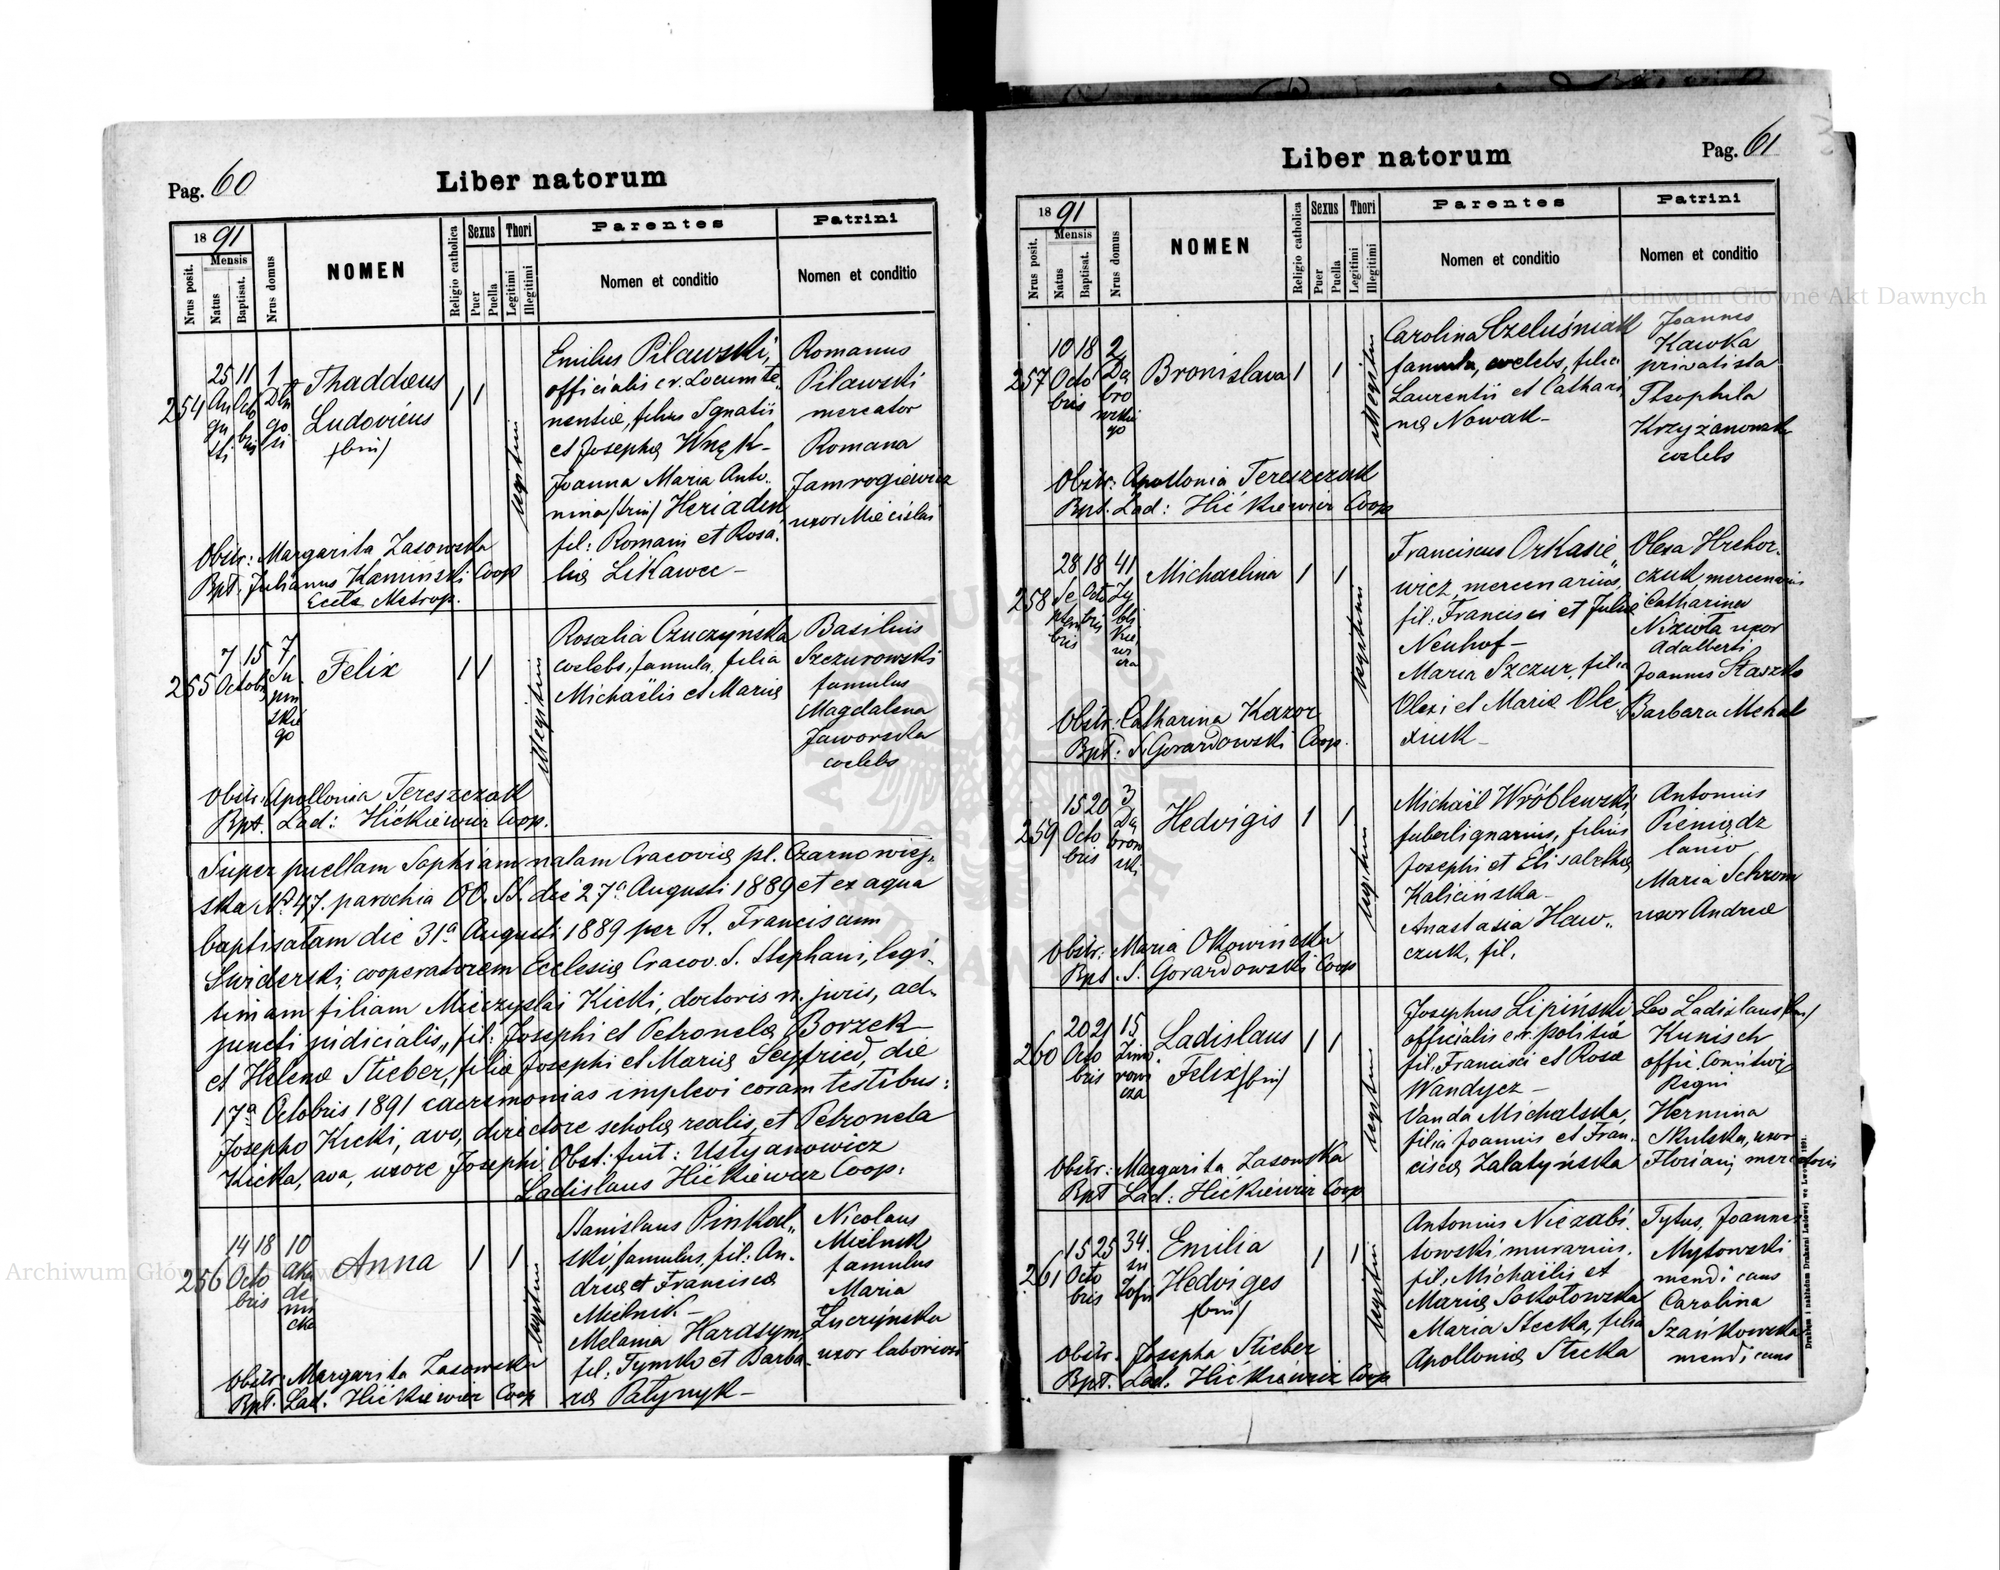 Pag. 60
Liber natorum
1891
Mensis
Nrus posit.
Natus
Baptisat.
Nrus domus
NOMEN
Religio catholica
Sexus
Puer
Puella
Thori
Legitimi
Illegitimi
Parentes
Nomen et conditio
Patrini
Nomen et conditio
254
25 Au gu sti
11 Octo bris
1 Dłu go sza
Thaddæus
Ludovicus
/bin/
1 1
legitimi
Emilus Pilawski,
officialis c.r. Locumte,
nentiæ, filius Ignatii
et Josephæ Wnęk –
Joanna Maria Anto,,
nina /trin/ Heriaden
fil: Romani et Rosa,
liæ Likawec –
Romanus
Pilawski
mercator
Romana
Jamrogiewicz
uxor Miecislai
Obstr: Margarita Zasowska
Bpt. Julianus Kamiński Coop
Eccle Metrop.
255
7 15
Octobr
7
Felix
1 1
illegitimi
Rosalia Czuczyńska
coelebs, famula, filia
Michaëlis et Mariæ
Basilius
Szczurowski
famulus
Magdalena
Jaworska
coelebs
Obstr: Apollonia Tereszczak
Bpt. Lad: Hićkiewicz Coop.
Super puellam Sophiam natam Cracoviæ pl. Czarnowiej,
ska No 47. parochia OO. SS. die 27a Augusti 1889 et ex aqua
baptisatam die 31a Augusti 1889 per R. Franciscum
Swiderski, cooperatorem Ecclesiæ Cracov. S. Stephani, legi,
timam filiam Mieczyslai Kicki, doctoris n. juris, ad,
juncti judicialis,, fil: Josephi et Petronelæ Borzek –
et Helenæ Stieber, filiæ Josephi et Mariæ Seyfried, die
17a Octobris 1891 cæremonias implevi coram testibus:
Josepho Kicki, avo, directore scholæ realis, et Petronela
Kicka, ava, uxore Josephi. Obst: fuit: Ustyanowicz
Ladislaus Hićkiewicz Coop:
256
14 18
Octo
bris
10 Aka de mi cka
Anna
1 1
legitimi
Stanislaus Pinkal,,
ski famulus, fil: An,
dreæ et Franciscæ
Mielnik –
Melania Hardsym,
fil: Tymko et Barba
ræ Patynyk –
Nicolaus
Mielnik
famulus
Maria
Łuczyńska
uxor laboriosi
Obstr: Margarita Zasowska
Bpt. Lad. Hićkiewicz Coop
Pag. 61
Liber natorum
1891
Mensis
Nrus posit.
Natus
Baptisat.
Nrus domus
NOMEN
Religio catholica
Sexus
Puer
Puella
Thori
Legitimi
Illegitimi
Parentes
Nomen et conditio
Patrini
Nomen et conditio
257
10 18
Octo
bris
2 Dą bro wskie go
Bronislava
1 1
illegitimi
Carolina Czeluśniak
famula, coelebs, filia
Laurentii et Cathari,
næ Nowak –
Joannes
Kawka
privatista
Theophila
Krzyżanowska
coelebs
Obstr: Apollonia Tereszczak
Bpt. Lad: Hićkiewicz Coop
258
28 Se ptem bris
18 Octo bris
41 Zy bli kie wi cza
Michaelina
1 1
legitimi
Franciscus Orkasie
wicz, mercenarius,
fil: Francisci et Juliæ
Neuhof –
Maria Szczur, filia
Olexi et Mariæ Ole
xiuk –
Olexa Hrehor,
czuk mercenarius
Catharina
Nizioła uxor
Adalberti
Joannes Staszko
Barbara Mehal
Obstr: Catharina Kazor
Bpt: S. Gorardowski Coop.
259
15 20
Octo
bris
3 Dą brow ski
Hedvigis
1 1
legitimi
Michaël Wróblewski,
faberlignarius, filius
Josephi et Elisabethæ
Kalicińska –
Anastasia Haw,,
czuk, fil.
Antonius
Pieniądz
lanio
Maria Schrom
uxor Andreæ
Obstr: Maria Okowińska
Bpt. S. Gorardowski Coop
260
20 21
Octo
bris
15 Zimo rowi cza
Ladislaus
Felix /bin/
1 1
legitimi
Josephus Lipiński
officialis c.r. politiæ
fil: Francisci et Rosæ
Wandycz –
Vanda Michalska,
filia Joannis et Fran,
ciscæ Zalatyńska
Leo Ladislaus /bin/
Kunisch
Regni
Hermina
Skulska, uxor
Floriani mercatoris
Obstr: Margarita Zasowska
Bpt Lad: Hićkiewicz Coop
261
15 25
Octo
bris
34. św Zofii
Emilia
Hedviges
/bin/
1 1
legitimi
Antonius Niezabi,
towski, murarius,
fil: Michaëlis et
Mariæ Sokołowska
Maria Stecka, filia
Apolloniæ Stecka
Tytus, Joannes
Mytowski
mendicans
Carolina
Szańkowska
mendicans
Obstr. Josepha Stieber
Bpt. Lad. Hićkiewicz Coop
Drukiem i nakładem Drukarni Ludowej we Lwowie 1891.
Archiwum Główne Akt Dawnych
Archiwum Główne Akt Dawnych